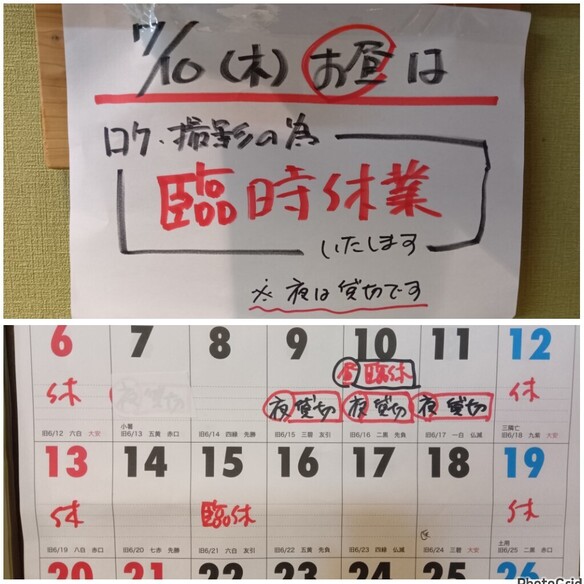 7/10(木)お昼は
ロケ、撮影の為
臨時休業
いたします
※夜は貸切です
6 7 8 9 10 11 12
昼 臨休
休 夜貸切 夜貸切 夜貸切 夜貸切 休
小暑 三隣亡
旧6/12 六白 大安 旧6/13 五黄 赤口 旧6/14 四緑 先勝 旧6/15 三碧 友引 旧6/16 二黒 先負 旧6/17 一白 仏滅 旧6/18 九紫 大安
13 14 15 16 17 18 19
休 臨休 休
土用
旧6/19 八白 赤口 旧6/20 七赤 先勝 旧6/21 六白 友引 旧6/22 五黄 先負 旧6/23 四緑 仏滅 旧6/24 三碧 大安 旧6/25 二黒 赤口
20 21 22 23 24 25 26
PhotoGrid